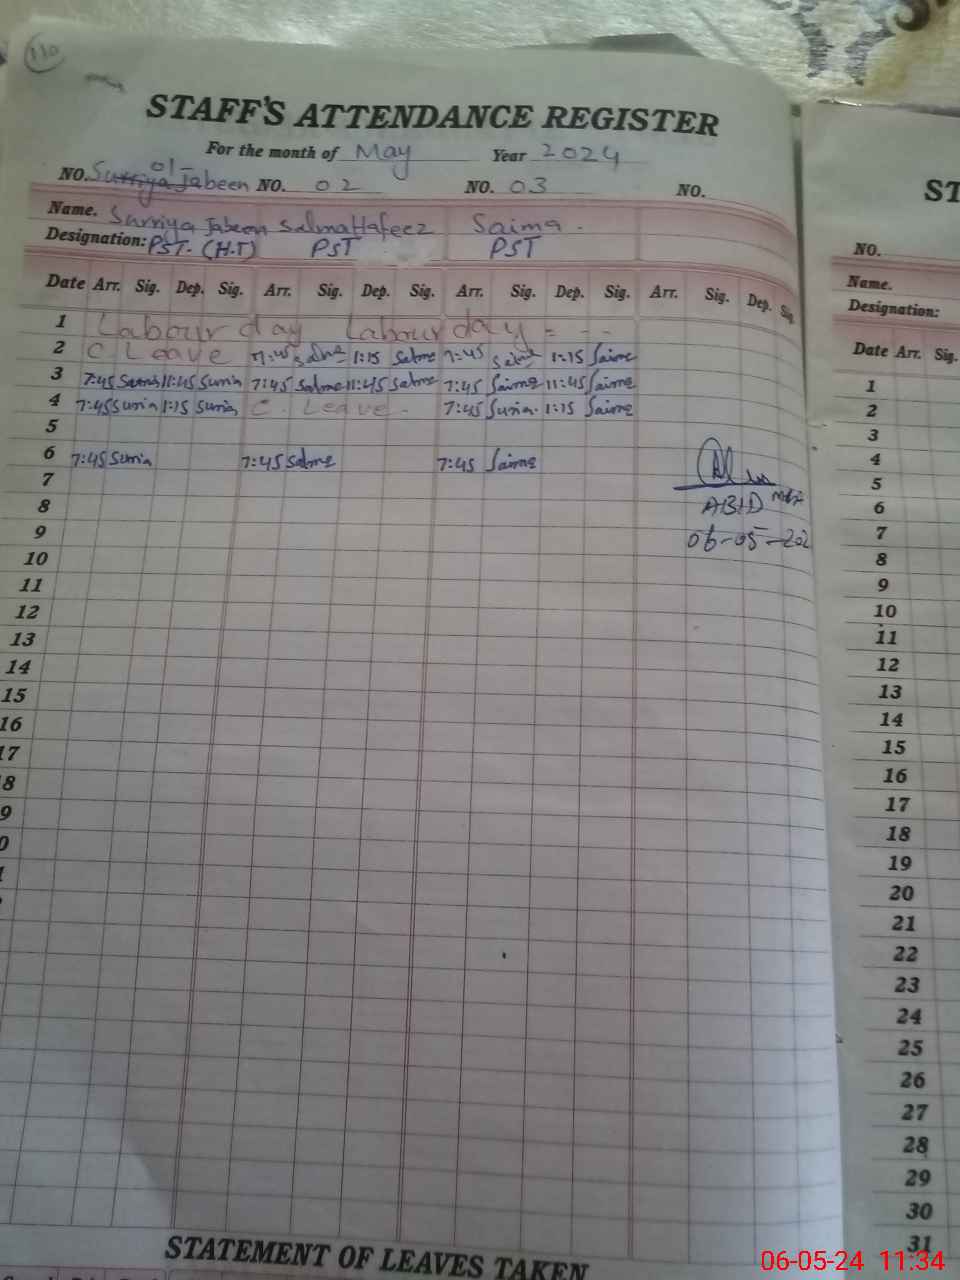 110
STAFF'S ATTENDANCE REGISTER
For the month of May Year 2024
01
NO. Surriya Jabeen NO. 02 NO. 03 NO.
Name. Surriya Jabeen Salma Hafeez Saima.
Designation: PST. (H.T) PST PST
Date Arr. Sig. Dep. Sig. Arr. Sig. Dep. Sig. Arr. Sig. Dep. Sig. Arr. Sig. Dep. Sig.
1 Labour day Labour day = - -
2 C. Leave 7:45 Salma 1:15 Salma 7:45 Saima 1:15 Saima
3 7:45 Surria 11:45 Surria 7:45 Salma 11:45 Salma 7:45 Saima 11:45 Saima
4 7:45 Surria 1:15 Surria C. Leave. 7:45 Surria. 1:15 Saima
5
6 7:45 Surria 7:45 Salma 7:45 Saima
7
ABID
8
06-05-202
9
10
11
12
13
14
15
16
17
8
9
0
STATEMENT OF LEAVES TAKEN
ST
NO.
Name.
Designation:
Date Arr. Sig.
1
2
3
4
5
6
7
8
9
10
11
12
13
14
15
16
17
18
19
20
21
22
23
24
25
26
27
28
29
30
31
06-05-24 11:34